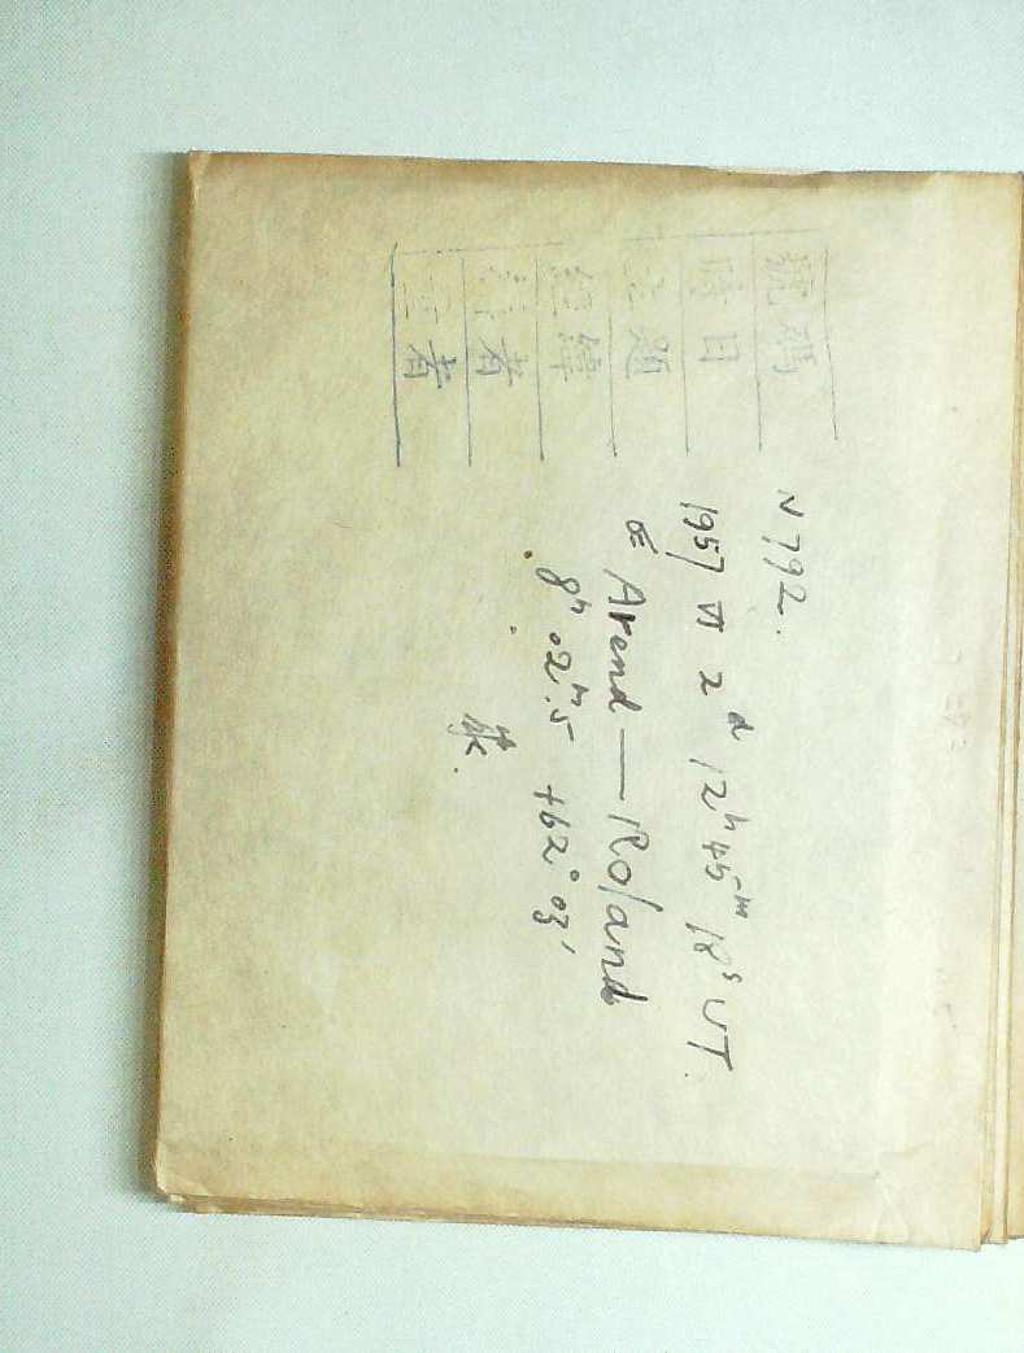 號碼 N 792.
時日 1957 VI 2ᵈ 12ʰ 45ᵐ 18ˢ UT.
題 Arend — Roland
經緯 8ʰ 02ᵐ.5 +62° 03′
者
者